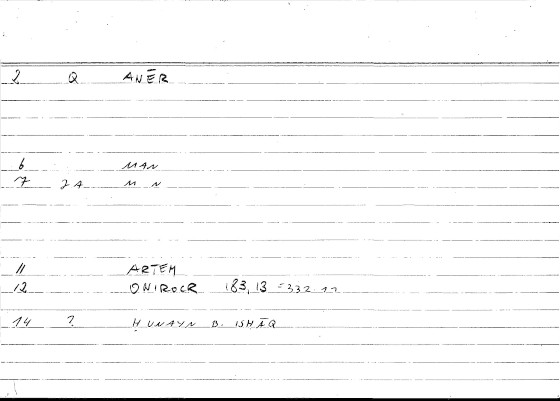 2 Q ANĒR
6 MAN
7 2A M N
11 ARTEM
12 ONIROCR 183,13 = 332 11
14 2 ḤUNAYN B. ISḤĀQ